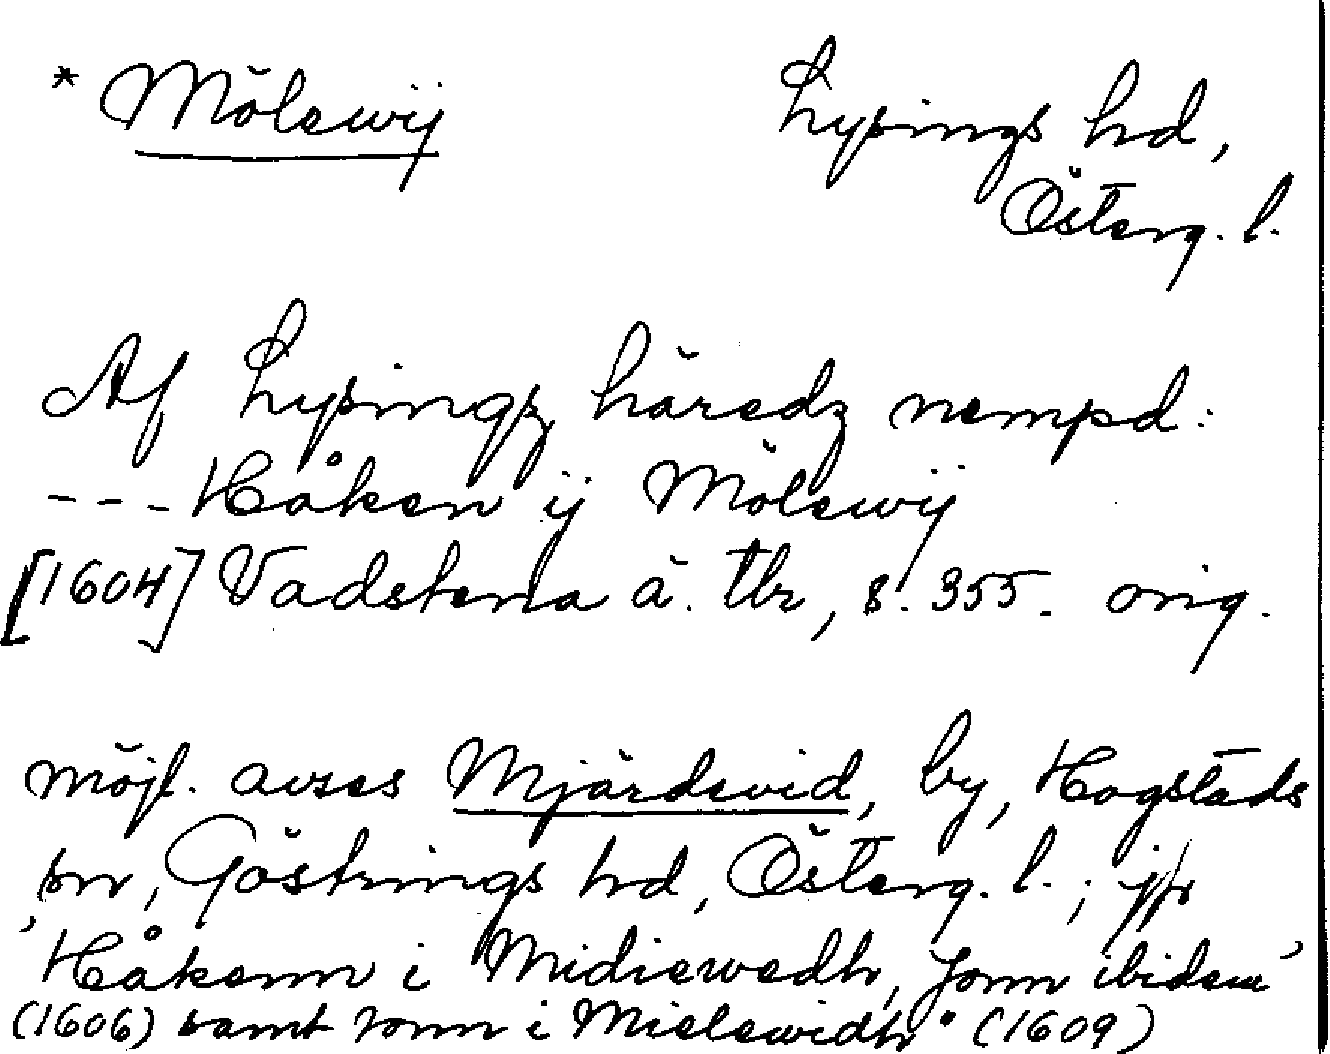 * Mölewij
Lysings hd,
Österg. l.
Af Lysingz häredz nempd:
--- Håken ij Mölewij
[1604] Vadstena ä. tbr, s. 355. orig.
möjl. avses Mjärdevid, by, Hogstads
sn, Göstrings hd, Österg. l.; jfr
'Håkenn i Midiewedh, Jonn ibidem'
(1606) samt Jonn i Mielewidh" (1609)